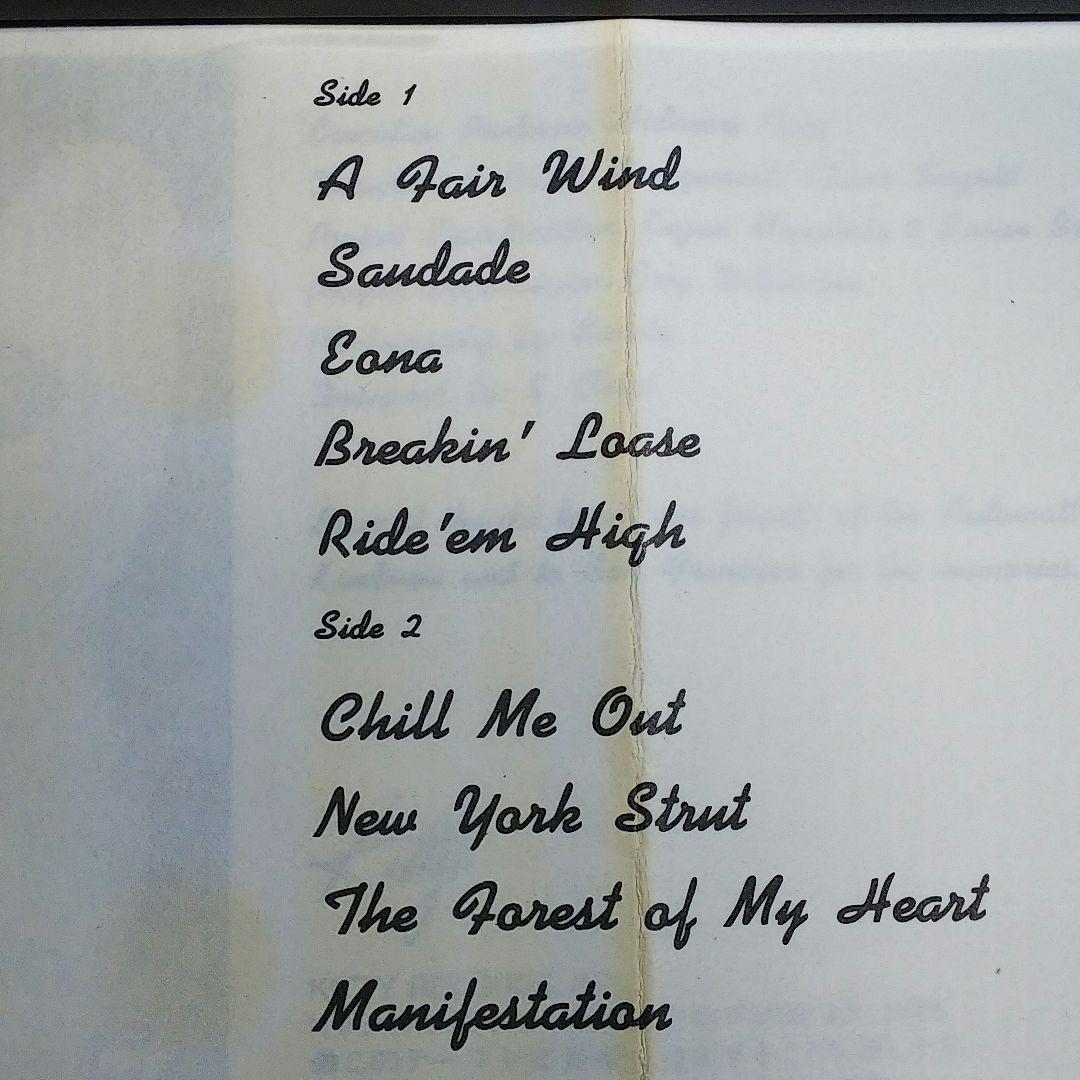 Side 1
A Fair Wind
Saudade
Eona
Breakin' Loase
Ride'em High
Side 2
Chill Me Out
New York Strut
The Forest of My Heart
Manifestation